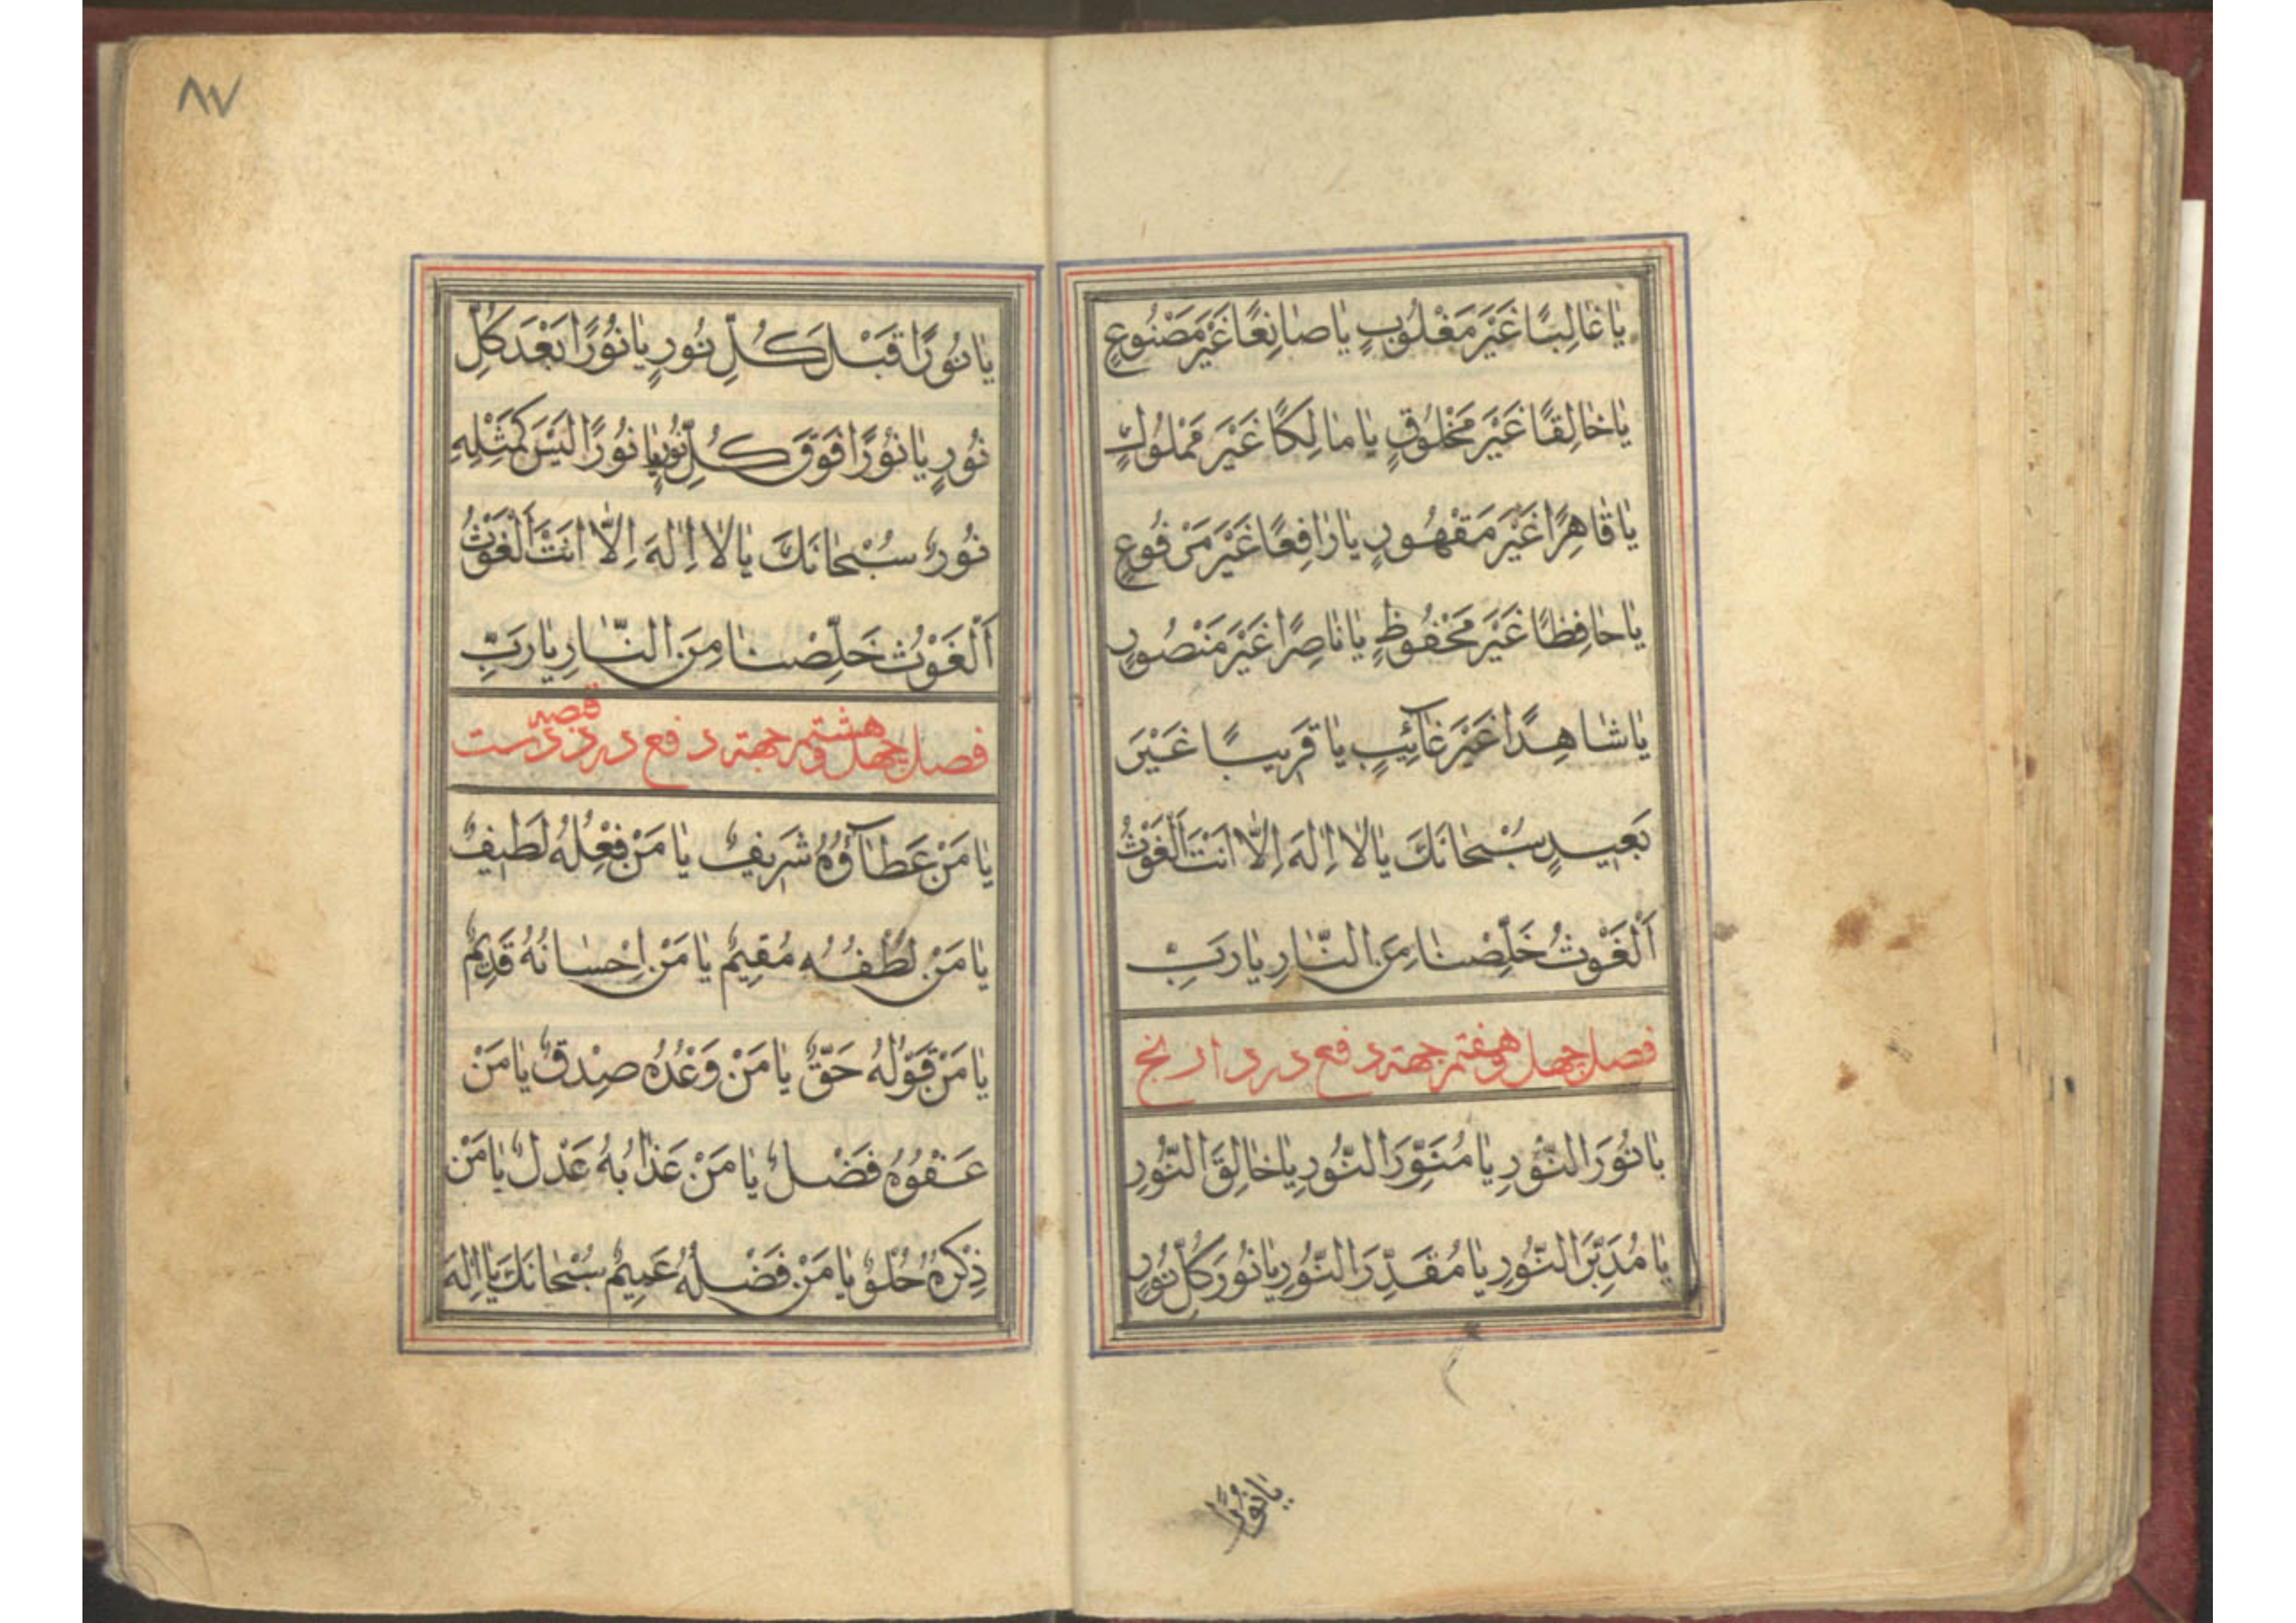 يٰا غٰالِبًا غَيْرَ مَغْلُوبٍ يٰا صٰانِعًا غَيْرَ مَصْنُوعٍ
يٰا خٰالِقًا غَيْرَ مَخْلُوقٍ يٰا مٰالِكًا غَيْرَ مَمْلُوكٍ
يٰا قٰاهِرًا غَيْرَ مَقْهُورٍ يٰا رٰافِعًا غَيْرَ مَرْفُوعٍ
يٰا حٰافِظًا غَيْرَ مَحْفُوظٍ يٰا نٰاصِرًا غَيْرَ مَنْصُورٍ
يٰا شٰاهِدًا غَيْرَ غٰآئِبٍ يٰا قَرِيبًا غَيْرَ
بَعِيدٍ سُبْحٰانَكَ يٰا لٰا اِلٰهَ اِلّٰا اَنْتَ اَلْغَوْثُ
اَلْغَوْثُ خَلِّصْنٰا مِنَ النّٰارِ يٰا رَبِّ
فصل چهل وهفتم جهته دفع درد ارنج
يٰا نُورَ النُّورِ يٰا مُنَوِّرَ النُّورِ يٰا خٰالِقَ النُّورِ
يٰا مُدَبِّرَ النُّورِ يٰا مُقَدِّرَ النُّورِ يٰا نُورَ كُلِّ نُورٍ
يٰا نُورًا
٨٧
يٰا نُورًا قَبْلَ كُلِّ نُورٍ يٰا نُورًا بَعْدَ كُلِّ
نُورٍ يٰا نُورًا فَوْقَ كُلِّ نُورٍ يٰا نُورًا لَيْسَ كَمِثْلِهِ
نُورٌ سُبْحٰانَكَ يٰا لٰا اِلٰهَ اِلّٰا اَنْتَ اَلْغَوْثُ
اَلْغَوْثُ خَلِّصْنٰا مِنَ النّٰارِ يٰا رَبِّ
فصل چهل وهشتم جهته دفع درد دست
يٰا مَنْ عَطٰآؤُهُ شَرِيفٌ يٰا مَنْ فِعْلُهُ لَطِيفٌ
يٰا مَنْ لُطْفُهُ مُقِيمٌ يٰا مَنْ اِحْسٰانُهُ قَدِيمٌ
يٰا مَنْ قَوْلُهُ حَقٌّ يٰا مَنْ وَعْدُهُ صِدْقٌ يٰا مَنْ
عَفْوُهُ فَضْلٌ يٰا مَنْ عَذٰابُهُ عَدْلٌ يٰا مَنْ
ذِكْرُهُ حُلْوٌ يٰا مَنْ فَضْلُهُ عَمِيمٌ سُبْحٰانَكَ يٰا اِلٰهَ